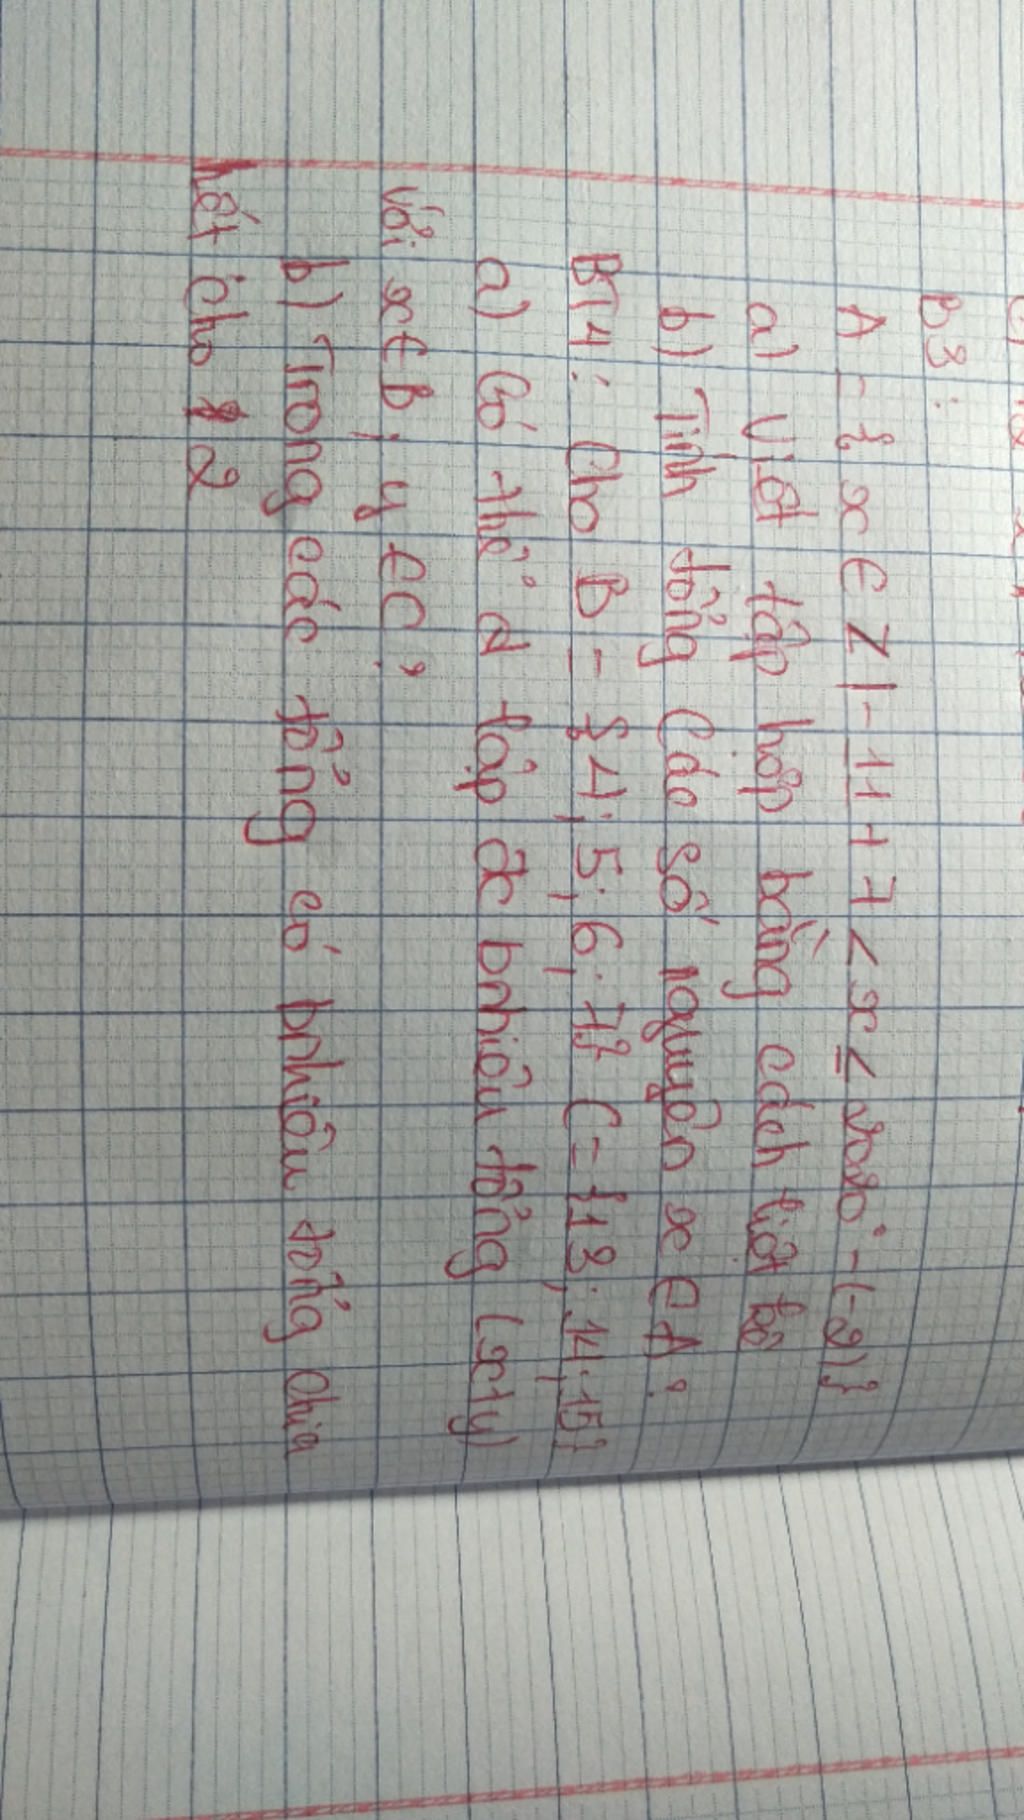 B3:
A = { x ∈ Z | -11 + 7 < x ≤ 2020° - (-2)}
a) Viết tập hợp bằng cách liệt kê
b) Tính tổng các số nguyên x ∈ A?
BT4: Cho B = {4; 5; 6; 7} C = {13; 14; 15}
a) Có thể lập đc bnhiêu tổng (x+y)
với x∈B; y ∈C?
b) Trong các tổng có bnhiêu tổng chia
hết cho 2